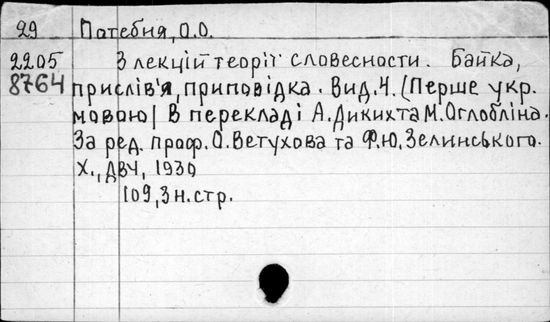 29 Потебня, О.О.
2205 З лекцій теорії словесности. Байка,
8764 прислів'я, приповідка. Вид. 4. (Перше укр.
мовою) В перекладі А. Диких та М. Оглобліна.
За ред. проф. О. Ветухова та Ф.Ю. Зелинського.
Х., ДВУ, 1930
109, 3 н. стр.